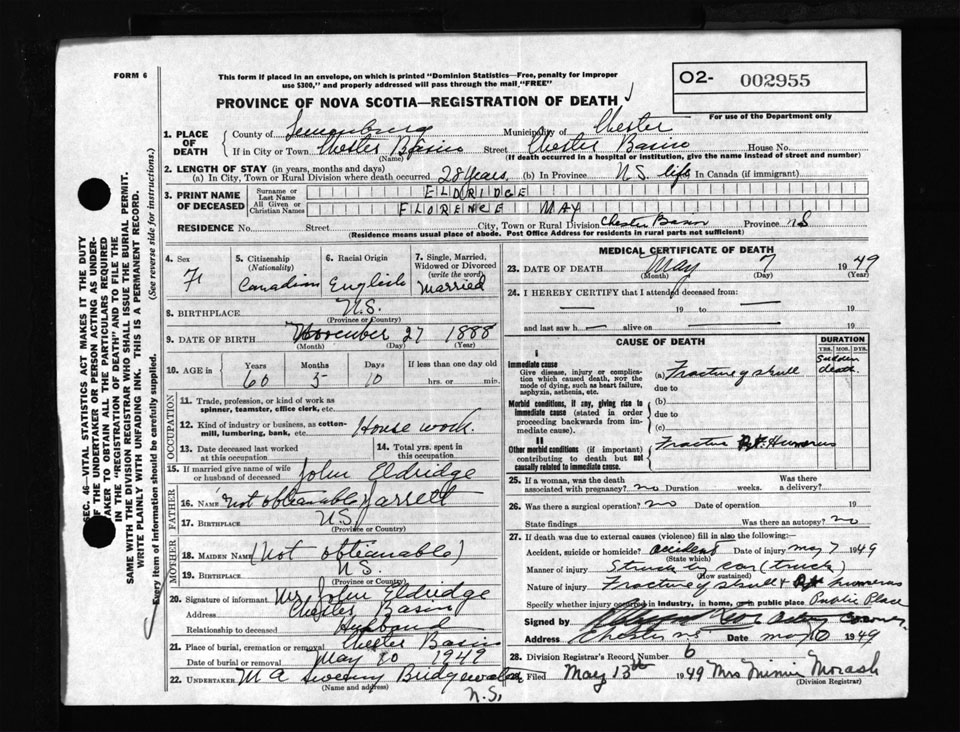 FORM 6
This form if placed in an envelope, on which is printed "Dominion Statistics—Free, penalty for improper
use $300," and properly addressed will pass through the mail "FREE"
O2- 002955
PROVINCE OF NOVA SCOTIA—REGISTRATION OF DEATH
For use of the Department only
1. PLACE OF DEATH
County of Lunenburg Municipality of Chester
If in City or Town Chester Basin Street Chester Basin House No.
(Name) (If death occurred in a hospital or institution, give the name instead of street and number)
2. LENGTH OF STAY (in years, months and days)
(a) In City, Town or Rural Division where death occurred 28 years, (b) In Province N.S. life In Canada (if immigrant)
3. PRINT NAME OF DECEASED
Surname or Last Name ELDRIDGE
All Given or Christian Names FLORENCE MAY
RESIDENCE No. Street City, Town or Rural Division Chester Basin Province N.S
(Residence means usual place of abode. Post Office Address for residents in rural parts not sufficient)
4. Sex 5. Citizenship (Nationality) 6. Racial Origin 7. Single, Married, Widowed or Divorced (write the word)
F Canadian English Married
8. BIRTHPLACE N.S.
(Province or Country)
9. DATE OF BIRTH November 27 1888
(Month) (Day) (Year)
10. AGE in Years Months Days If less than one day old
60 5 10 hrs. or min.
OCCUPATION
11. Trade, profession, or kind of work as
spinner, teamster, office clerk, etc.
12. Kind of industry or business, as cotton-
mill, lumbering, bank, etc. House work
13. Date deceased last worked at this occupation 14. Total yrs. spent in this occupation
15. If married give name of wife
or husband of deceased John Eldridge
FATHER
16. NAME Not obtianable Jarrett
17. BIRTHPLACE N.S.
(Province or Country)
MOTHER
18. MAIDEN NAME (Not obtianable)
19. BIRTHPLACE N.S.
(Province or Country)
20. Signature of informant. Mr John Eldridge
Address Chester Basin
Relationship to deceased Husband
21. Place of burial, cremation or removal Chester Basin
Date of burial or removal May 10 1949
22. UNDERTAKER M A Sweeny Bridgewater
(Name and address) N.S.
MEDICAL CERTIFICATE OF DEATH
23. DATE OF DEATH May 7 1949
(Month) (Day) (Year)
24. I HEREBY CERTIFY that I attended deceased from —
— 19 to — 19
and last saw h — alive on — 19
CAUSE OF DEATH
DURATION
YRS. MOS. DYS.
I
Immediate cause
Give disease, injury or complica-
tion which caused death, NOT the
mode of dying, such as heart failure,
asphyxia, asthenia, etc.
(a) Fracture of skull Sudden death.
due to
Morbid conditions, if any, giving rise to
immediate cause (stated in order
proceeding backwards from im-
mediate cause).
(b)
due to
(c)
II
Other morbid conditions (if important)
contributing to death but not
causally related to immediate cause.
Fracture Rt. Humerus
25. If a woman, was the death
associated with pregnancy? no Duration weeks. Was there a delivery?
26. Was there a surgical operation? no Date of operation 19
State findings Was there an autopsy? no
27. If death was due to external causes (violence) fill in also the following:—
Accident, suicide or homicide? accident Date of injury May 7 1949
(State which)
Manner of injury Struck by car (truck)
(How sustained)
Nature of injury Fracture of skull & Rt humerus
Specify whether injury occurred in industry, in home, or in public place Public Place
Signed by Acting Coroner
Address Chester NS Date May 10 1949
28. Division Registrar's Record Number 6
Filed May 13th 1949 Mrs Minnie Morash
(Division Registrar)
SEC. 46—VITAL STATISTICS ACT MAKES IT THE DUTY
OF THE UNDERTAKER OR PERSON ACTING AS UNDER-
TAKER TO OBTAIN ALL THE PARTICULARS REQUIRED
IN THE "REGISTRATION OF DEATH" AND TO FILE THE
SAME WITH THE DIVISION REGISTRAR WHO SHALL ISSUE THE BURIAL PERMIT.
WRITE PLAINLY WITH UNFADING INK. THIS IS A PERMANENT RECORD.
Every item of information should be carefully supplied. (See reverse side for instructions.)